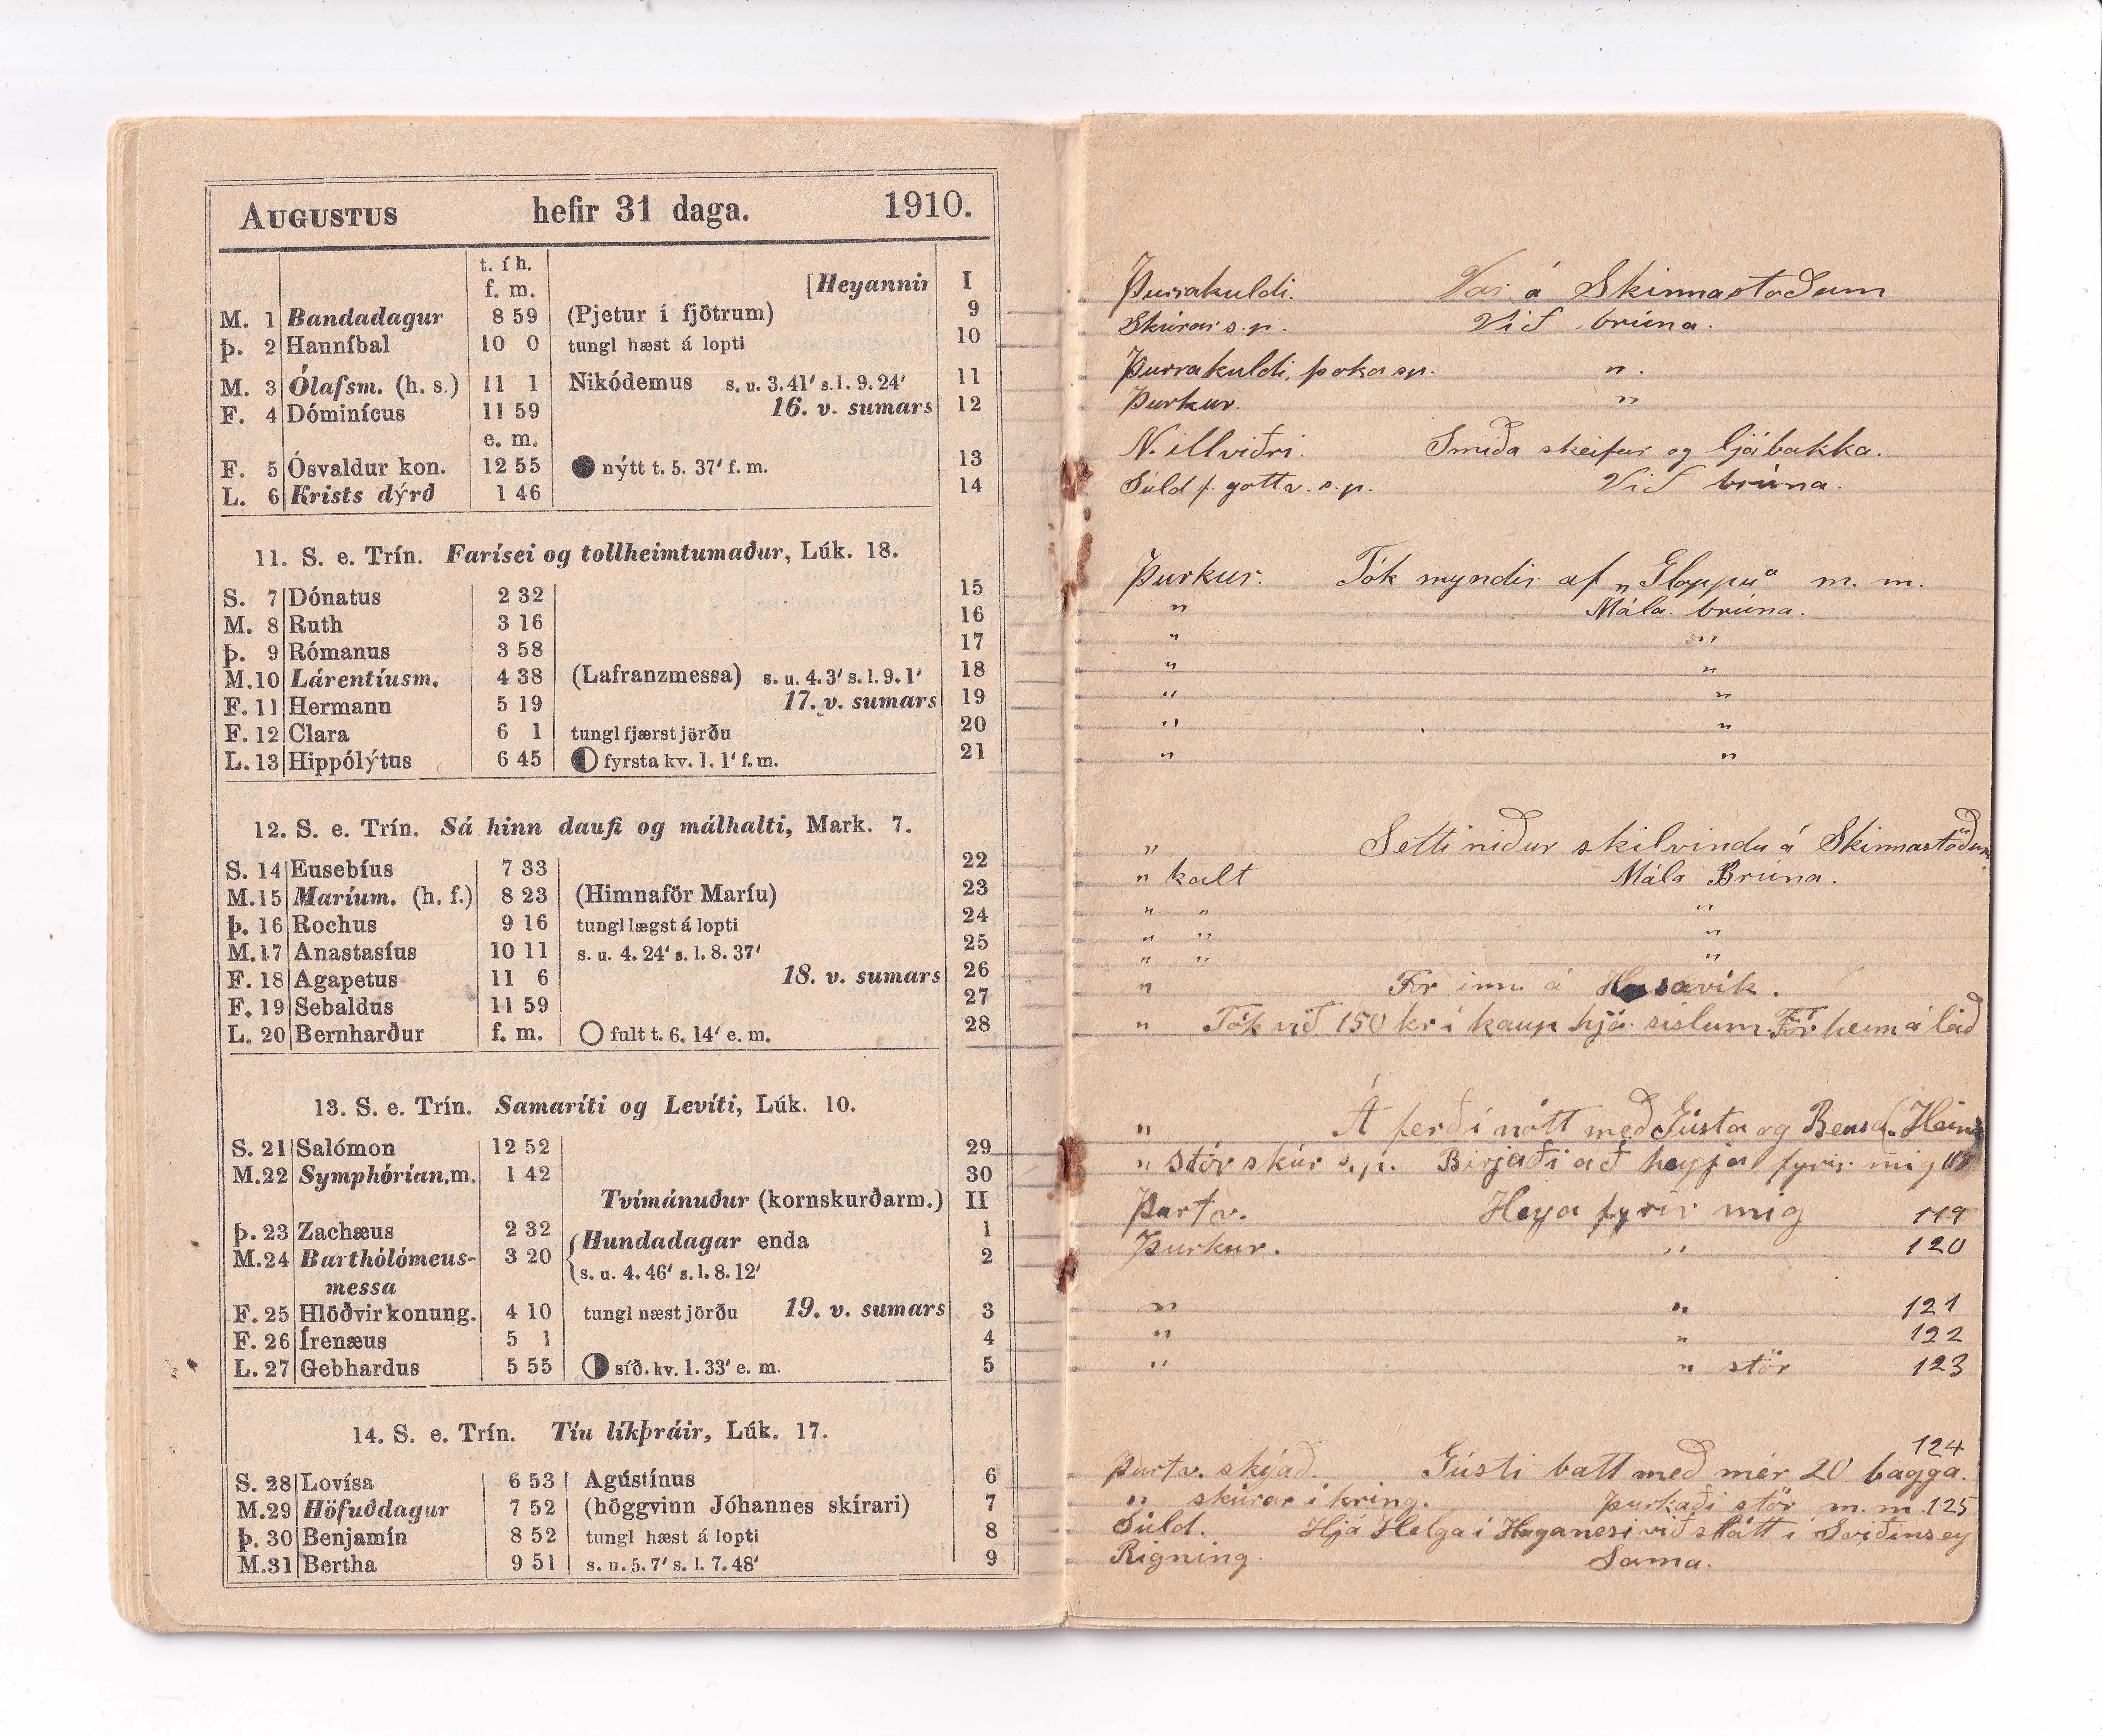 AUGUSTUS hefir 31 daga. 1910.
t. í h.
f. m. [Heyannir I
M. 1 Bandadagur 8 59 (Pjetur í fjötrum) 9
Þ. 2 Hanníbal 10 0 tungl hæst á lopti 10
M. 3 Ólafsm. (h. s.) 11 1 Nikódemus s. u. 3. 41' s. l. 9. 24' 11
F. 4 Dóminícus 11 59 16. v. sumars 12
e. m.
F. 5 Ósvaldur kon. 12 55 nýtt t. 5. 37' f. m. 13
L. 6 Krists dýrð 1 46 14
11. S. e. Trín. Farísei og tollheimtumaður, Lúk. 18.
S. 7 Dónatus 2 32 15
M. 8 Ruth 3 16 16
Þ. 9 Rómanus 3 58 17
M. 10 Lárentíusm. 4 38 (Lafranzmessa) s. u. 4. 3' s. l. 9. 1' 18
F. 11 Hermann 5 19 17. v. sumars 19
F. 12 Clara 6 1 tungl fjærst jörðu 20
L. 13 Hippólýtus 6 45 fyrsta kv. l. 1' f. m. 21
12. S. e. Trín. Sá hinn daufi og málhalti, Mark. 7.
S. 14 Eusebíus 7 33 22
M. 15 Maríum. (h. f.) 8 23 (Himnaför Maríu) 23
Þ. 16 Rochus 9 16 tungl lægst á lopti 24
M. 17 Anastasíus 10 11 s. u. 4. 24' s. l. 8. 37' 25
F. 18 Agapetus 11 6 18. v. sumars 26
F. 19 Sebaldus 11 59 27
L. 20 Bernharður f. m. fult t. 6. 14' e. m. 28
13. S. e. Trín. Samaríti og Levíti, Lúk. 10.
S. 21 Salómon 12 52 29
M. 22 Symphórían.m. 1 42 30
Tvímánuður (kornskurðarm.) II
Þ. 23 Zachæus 2 32 1
Hundadagar enda
M. 24 Barthólómeus- 3 20 2
messa s. u. 4. 46' s. l. 8. 12'
F. 25 Hlöðvir konung. 4 10 tungl næst jörðu 19. v. sumars 3
F. 26 Írenæus 5 1 4
L. 27 Gebhardus 5 55 síð. kv. l. 33' e. m. 5
14. S. e. Trín. Tíu líkþráir, Lúk. 17.
S. 28 Lovísa 6 53 Agústínus 6
M. 29 Höfuðdagur 7 52 (höggvinn Jóhannes skírari) 7
Þ. 30 Benjamín 8 52 tungl hæst á lopti 8
M. 31 Bertha 9 51 s. u. 5. 7' s. l. 7. 48' 9
Þurrakuldi. Var á Skinnastoðum
Skúrar s. p. Við brúna.
Þurrakuldi, þoka sp. "
Þurkur. "
N. illviðri. Smiða skeifur og ljábakka.
Súld f. gott v. s. p. Við brúna.
Þurkur. Tók myndir af „Gloppu" m. m.
" Mála brúna.
" "
" "
" "
" "
" "
" Setti niður skilvindu á Skinnastöðum
" kalt Mála Brúna.
" " "
" " "
" " "
" Fór inn á Húsavík.
" Tók við 150 kr í kaup hjá sislum. Fór heim á leið
" Á ferð í nótt með Gústa og Bensa
" Stór skúr s. p. Birjaði að heyja fyrir mig 118
Þurt v. Heyja fyrir mig 119
Þurkur. " 120
" " 121
" " 122
" " stör 123
124
Þurt v. skýað. Gústi batt með mér 20 bagga.
" skúrar í kring. Þurkaði stör m. m. 125
Súld. Hjá Helga í Haganesi við slátt í Sviðinsey
Rigning. Sama.